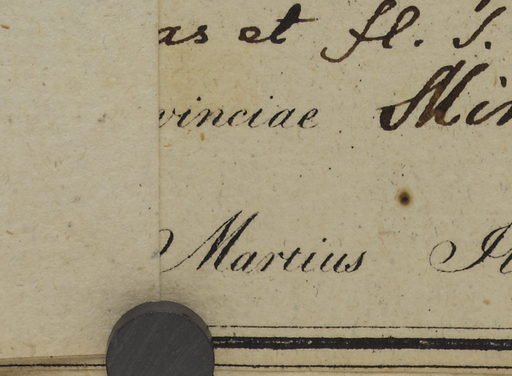 as et fl. S.
vinciae Min
Martius It